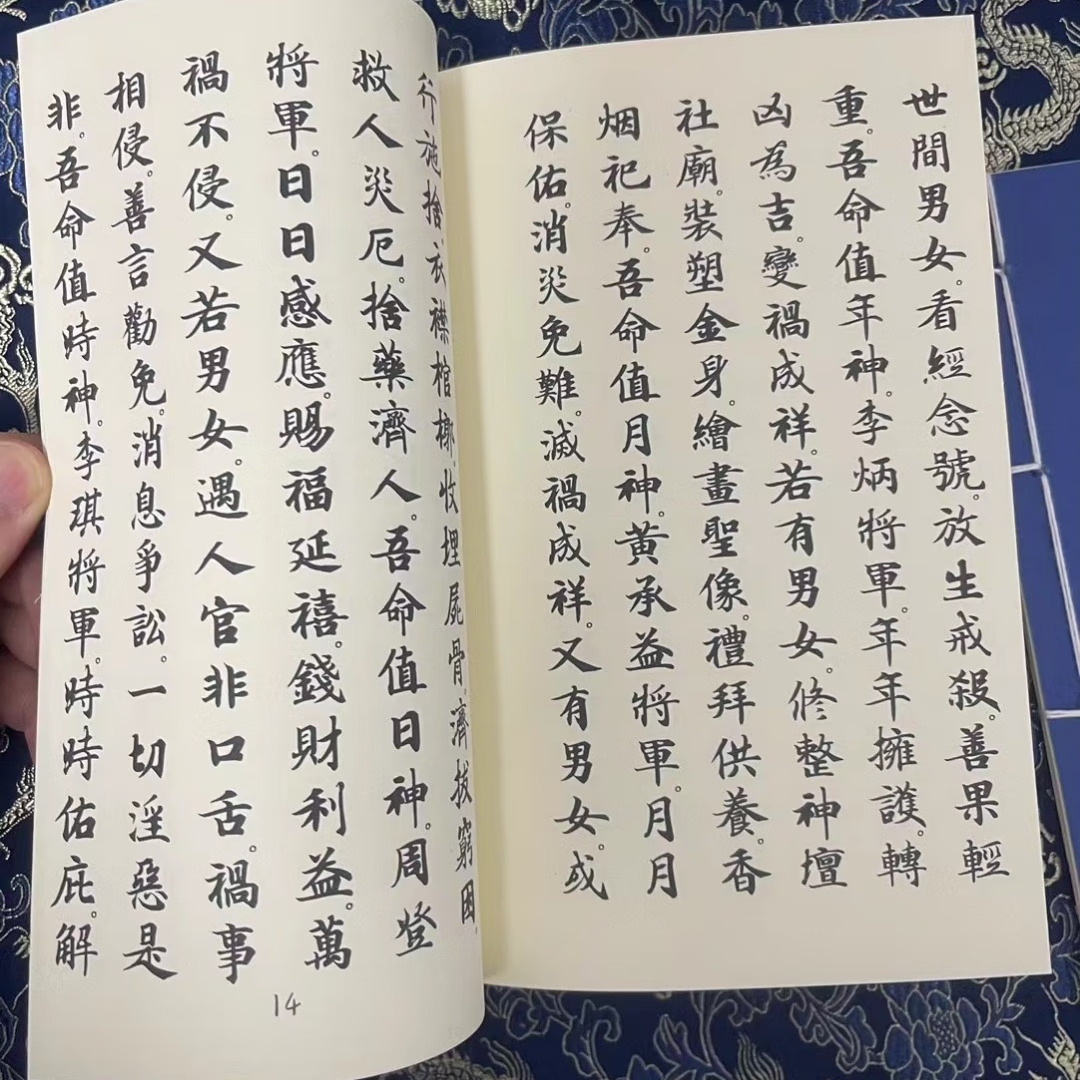 世間男女。看經念號。放生戒殺。善果輕
重。吾命值年神。李炳將軍。年年擁護。轉
凶為吉。變禍成祥。若有男女。修整神壇
社廟。裝塑金身。繪畫聖像。禮拜供養。香
烟祀奉。吾命值月神。黃承益將軍。月月
保佑。消災免難。滅禍成祥。又有男女。或
行施捨。衣襟棺槨。收埋屍骨。濟拔窮困。
救人災厄。捨藥濟人。吾命值日神。周登
將軍。日日感應。賜福延禧。錢財利益。萬
禍不侵。又若男女。遇人官非口舌。禍事
相侵。善言勸免。消息爭訟。一切淫惡是
非。吾命值時神。李琪將軍。時時佑庇。解
14